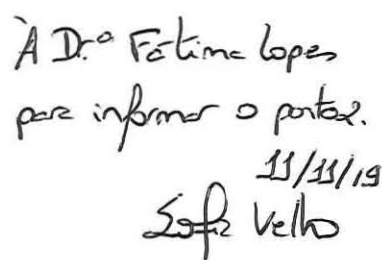 À Dr.ª Fátima Lopes
para informar o ponto 2.
11/11/19
Sofia Velho